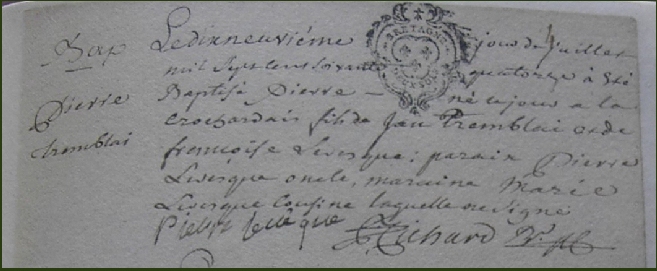 Bap
Pierre
tremblai
Le dixneuviéme jour de juillet
mil sept cens soixante quatorze à été
Baptisé Pierre — né ce jour a la
crochardais fils de Jan Tremblai et de
françoise Levesque : parain Pierre
Levesque oncle, maraine Marie
Levesque Cousine laquelle ne signe
Pierre leveque Richard
BRETAGNE